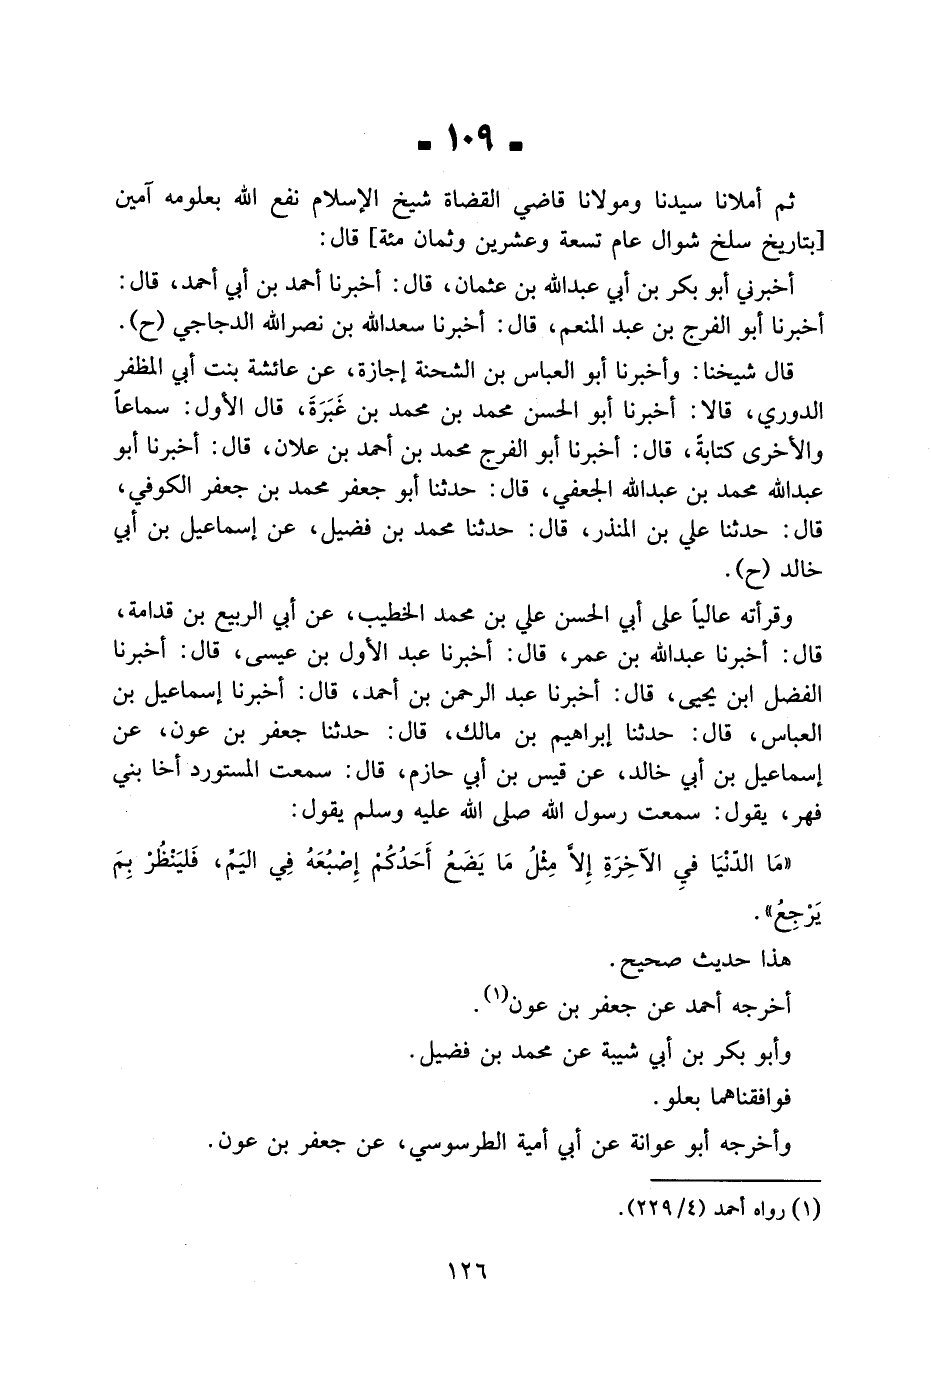 - ١٠٩ -
ثم أملانا سيدنا ومولانا قاضي القضاة شيخ الإسلام نفع الله بعلومه آمين
[بتاريخ سلخ شوال عام تسعة وعشرين وثمان مئة] قال:
أخبرني أبو بكر بن أبي عبدالله بن عثمان، قال: أخبرنا أحمد بن أبي أحمد، قال:
أخبرنا أبو الفرج بن عبد المنعم، قال: أخبرنا سعدالله بن نصرالله الدجاجي (ح).
قال شيخنا: وأخبرنا أبو العباس بن الشحنة إجازة، عن عائشة بنت أبي المظفر
الدوري، قالا: أخبرنا أبو الحسن محمد بن محمد بن غَبَرَةَ، قال الأول: سماعاً
والأخرى كتابةً، قال: أخبرنا أبو الفرج محمد بن أحمد بن علان، قال: أخبرنا أبو
عبدالله محمد بن عبدالله الجعفي، قال: حدثنا أبو جعفر محمد بن جعفر الكوفي،
قال: حدثنا علي بن المنذر، قال: حدثنا محمد بن فضيل، عن إسماعيل بن أبي
خالد (ح).
وقرأته عالياً على أبي الحسن علي بن محمد الخطيب، عن أبي الربيع بن قدامة،
قال: أخبرنا عبدالله بن عمر، قال: أخبرنا عبد الأول بن عيسى، قال: أخبرنا
الفضل ابن يحيى، قال: أخبرنا عبد الرحمن بن أحمد، قال: أخبرنا إسماعيل بن
العباس، قال: حدثنا إبراهيم بن مالك، قال: حدثنا جعفر بن عون، عن
إسماعيل بن أبي خالد، عن قيس بن أبي حازم، قال: سمعت المستورد أخا بني
فهر، يقول: سمعت رسول الله صلى الله عليه وسلم يقول:
«مَا الدّنْيَا فيِ الآخِرَةِ إِلاَّ مِثْلُ مَا يَضَعُ أَحَدُكُمْ إِصْبُعَهُ فِي اليَمِّ، فَليَنْظُرْ بِمَ
يَرْجِعُ».
هذا حديث صحيح.
أخرجه أحمد عن جعفر بن عون(١).
وأبو بكر بن أبي شيبة عن محمد بن فضيل.
فوافقناهما بعلو.
وأخرجه أبو عوانة عن أبي أمية الطرسوسي، عن جعفر بن عون.
(١) رواه أحمد (٢٢٩/٤).
١٢٦